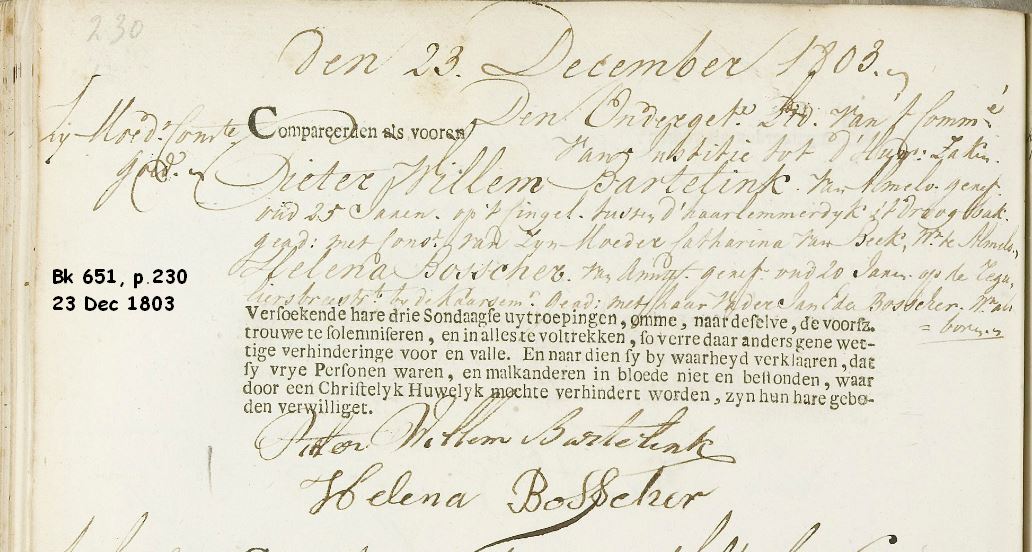 230
den 23. December 1803.
Zyn Moedrs Const
goed.
Compareerden als vooren
Den Ondergetk Lid. Van 't Commé
Van Justitie tot d' Huw: Zaken.
Pieter Willem Bartelink. Van Almelo. geref.
oud 25 Jaren. op 't singel. tussen d' haarlemmerdyk
geads: met Const. van Zyn Moeder Catharina van Beek, Wt. te Almelo.
Helena Bosscher. van Amst. geref. oud 20 Jaren. op de Regu=
liersbreestrt. by de Kaarsem Geads: met haar Vader Jan Bosscher. Wt. als
= boven.
Versoekende hare drie Sondaagse uytroepingen, omme, naar deselve, de voorsz.
trouwe te solemniseren, en in alles te voltrekken, so verre daar anders gene wet-
tige verhinderinge voor en valle. En naar dien sy by waarheyd verklaaren, dat
sy vrye Personen waren, en malkanderen in bloede niet en bestonden, waar
door een Christelyk Huwelyk mochte verhindert worden, zyn hun hare gebo-
den verwilliget.
Pieter Willem Bartelink
Helena Bosscher
Bk 651, p.230
23 Dec 1803